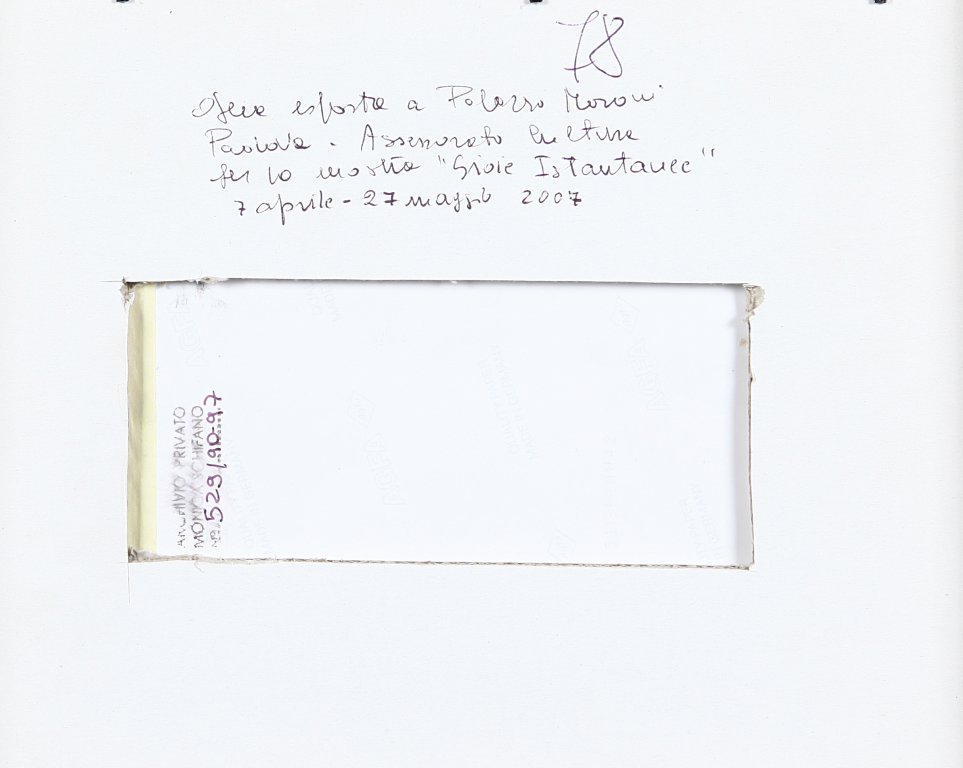 78
Opera esposta a Palazzo Moroni
Padova - Assessorato Cultura
per la mostra "Gioie Istantanee"
7 aprile - 27 maggio 2007
ARCHIVIO PRIVATO
MONICA SCHIFANO
N° 529/90-97
AGFA
AGFA
AGFA